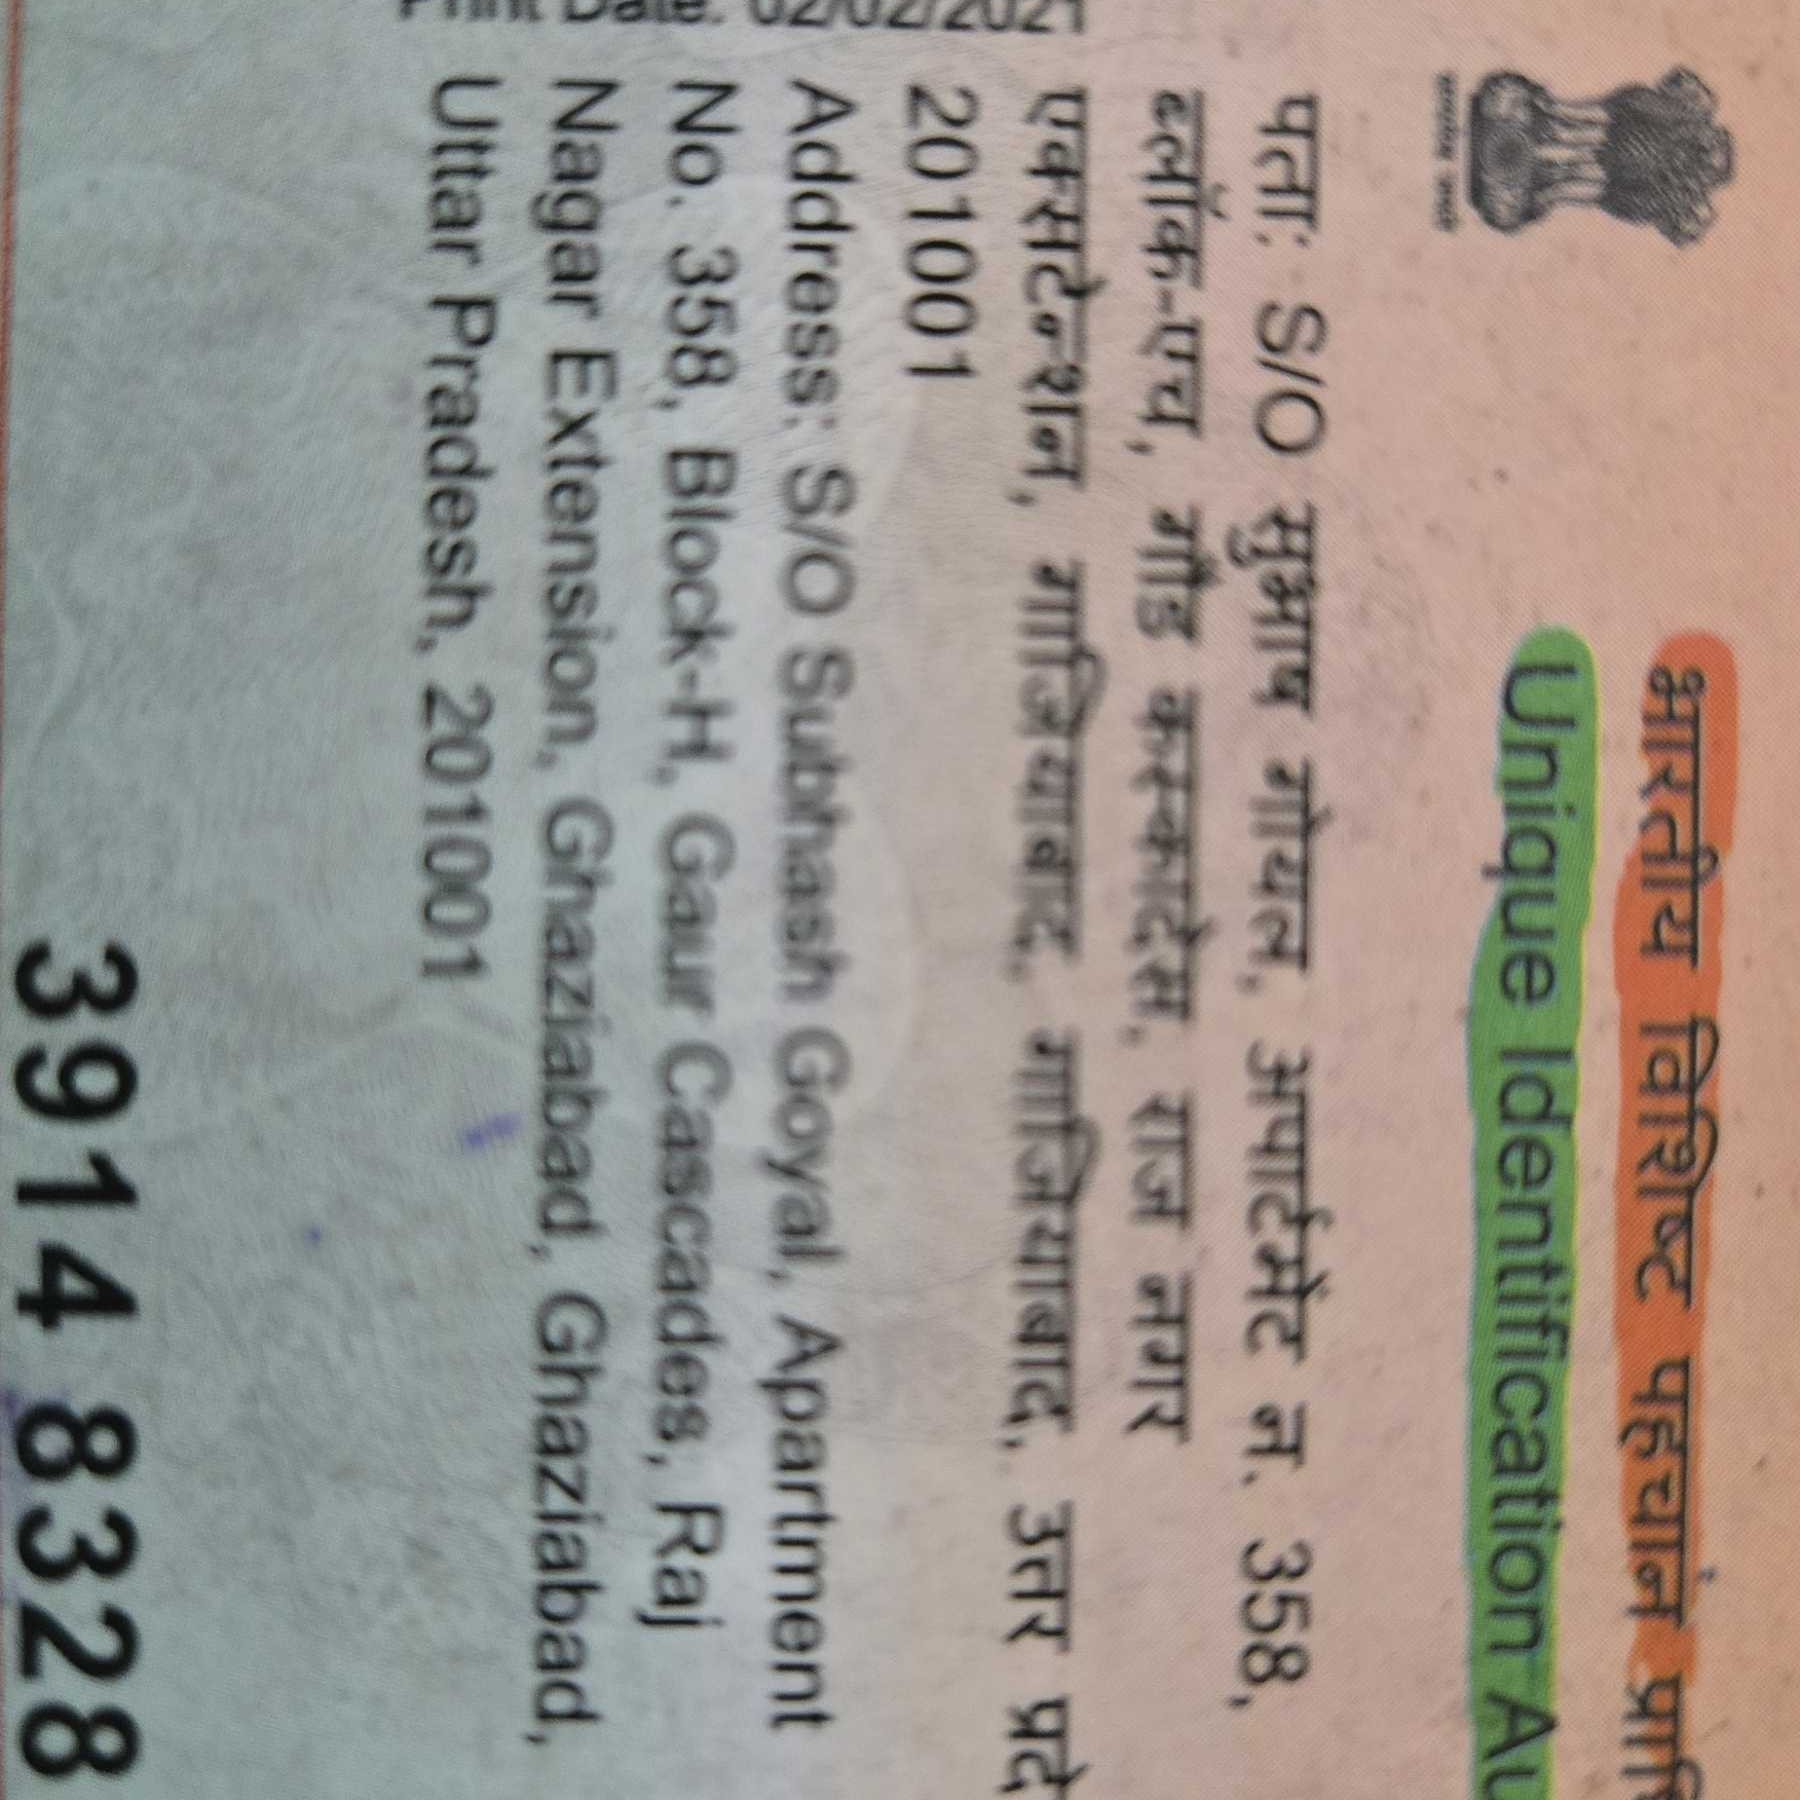 भारतीय विशिष्ट पहचान
Unique Identification
पता: S/O सुभाष गोयल, अपार्टमेंट न. 358,
ब्लॉक-एच, गौड़ कस्कादेस, राज नगर
एक्सटेन्शन, गाजियाबाद, गाजियाबाद, उत्तर
201001
Address: S/O Subhash Goyal, Apartment
No. 358, Block-H, Gaur Cascades, Raj
Nagar Extension, Ghaziabad, Ghaziabad,
Uttar Pradesh, 201001
Print Date: 02/02/2021
3914 8328